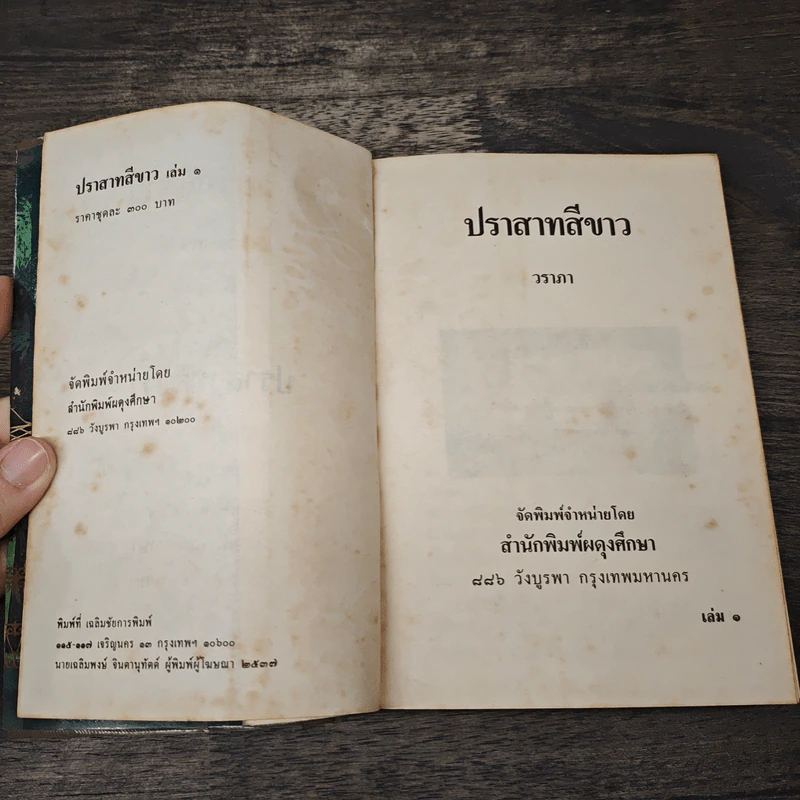 ปราสาทสีขาว เล่ม ๑
ราคาชุดละ ๓๐๐ บาท
จัดพิมพ์จำหน่ายโดย
สำนักพิมพ์ผดุงศึกษา
๘๘๖ วังบูรพา กรุงเทพฯ ๑๐๒๐๐
พิมพ์ที่ เฉลิมชัยการพิมพ์
๑๑๕-๑๑๗ เจริญนคร ๑๓ กรุงเทพฯ ๑๐๖๐๐
นายเฉลิมพงษ์ จินดานุทัตต์ ผู้พิมพ์ผู้โฆษณา ๒๕๓๗
ปราสาทสีขาว
วราภา
จัดพิมพ์จำหน่ายโดย
สำนักพิมพ์ผดุงศึกษา
๘๘๖ วังบูรพา กรุงเทพมหานคร
เล่ม ๑